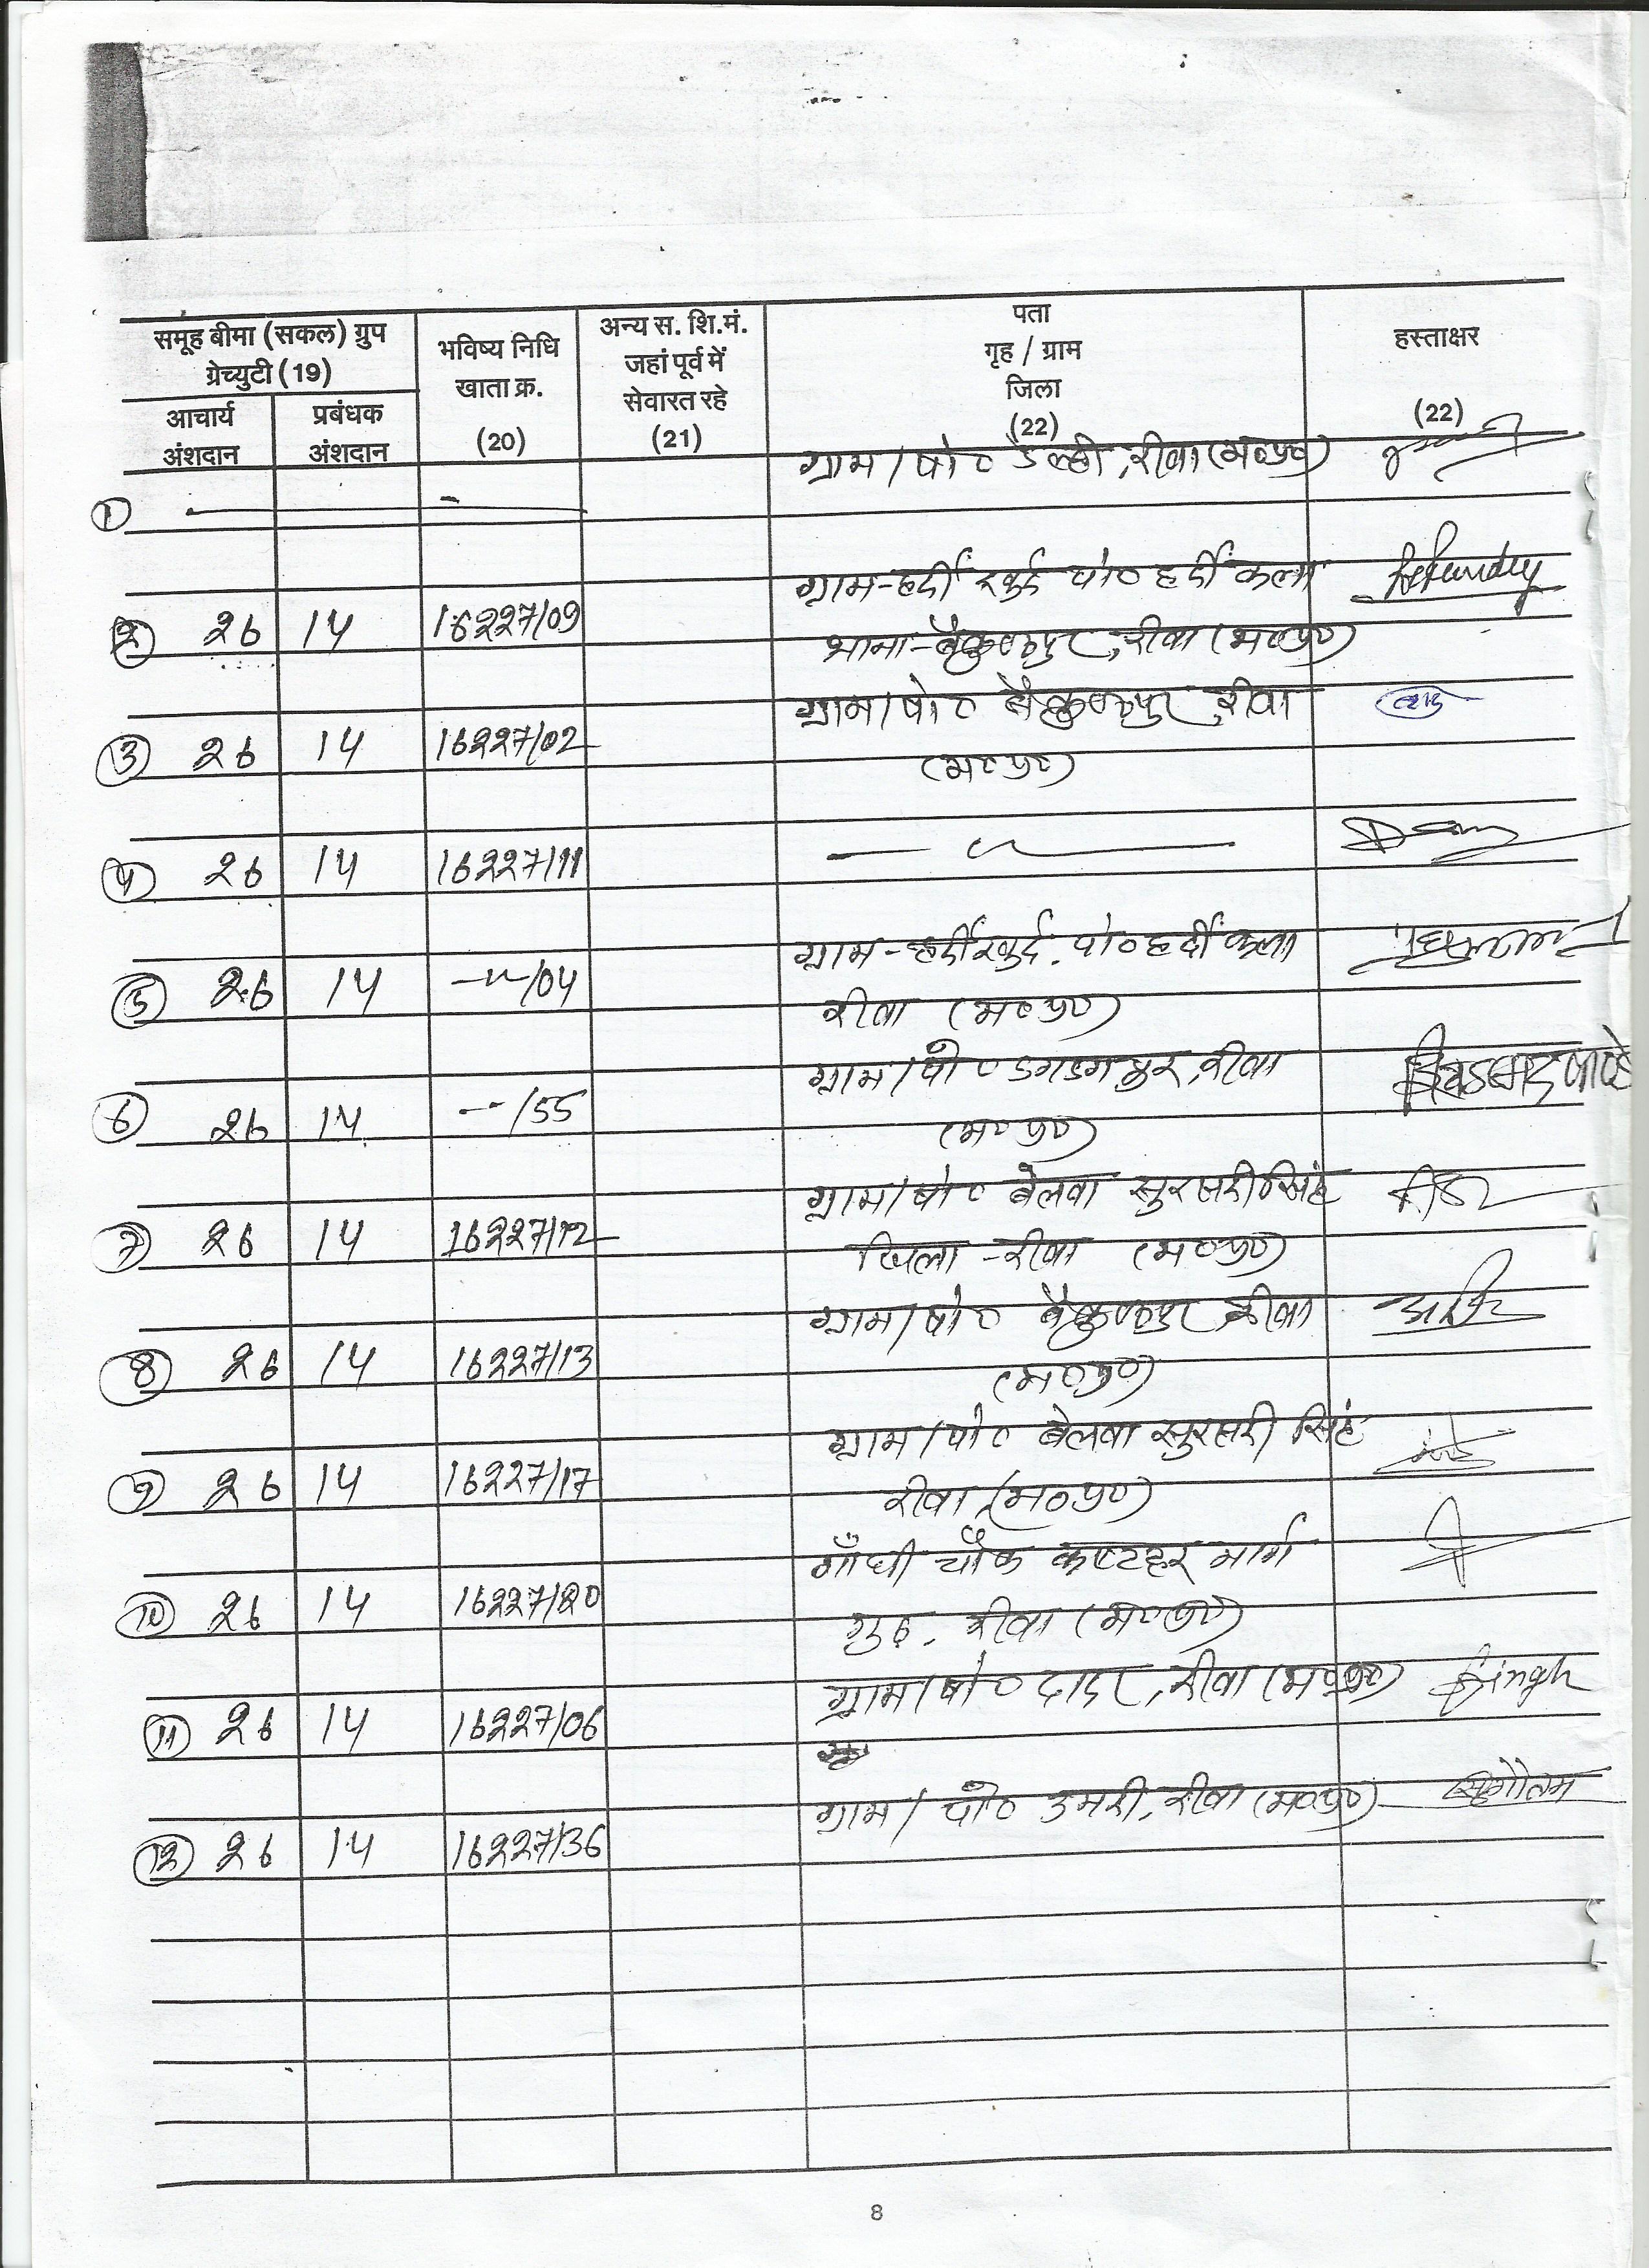 समूह बीमा (सकल) ग्रुप ग्रेच्युटी (19)
आचार्य अंशदान
प्रबंधक अंशदान
भविष्य निधि खाता क्र. (20)
अन्य स. शि.मं. जहां पूर्व में सेवारत रहे (21)
पता गृह / ग्राम जिला (22)
हस्ताक्षर (22)
① ग्राम/पो० रीवा (म०प्र०)
② 26 14 16227/09 ग्राम-हर्दी खुर्द पो० हर्दी कला
थाना-बैकुण्ठपुर, रीवा (म०प्र०)
③ 26 14 16227/02 ग्राम/पो० बैकुण्ठपुर, रीवा
(म०प्र०)
④ 26 14 16227/11 — ,, —
⑤ 26 14 -"-/04 ग्राम-हर्दी खुर्द, पो० हर्दी कला
रीवा (म०प्र०)
⑥ 26 14 --/55 ग्राम/पो० रीवा
(म०प्र०)
⑦ 26 14 16227/12 ग्राम/पो० बेलवा सुरसरी सिंह
जिला-रीवा (म०प्र०)
⑧ 26 14 16227/13 ग्राम/पो० बैकुण्ठपुर रीवा
(म०प्र०)
⑨ 26 14 16227/17 ग्राम/पो० बेलवा सुरसरी सिंह
रीवा, (म०प्र०)
⑩ 26 14 16227/20 गाँधी चौक कष्टहर मार्ग
गुढ़, रीवा (म०प्र०)
⑪ 26 14 16227/06 ग्राम/पो० दादर, रीवा (म०प्र०) Singh
⑫ 26 14 16227/36 ग्राम/पो० उमरी, रीवा (म०प्र०) गौतम
8